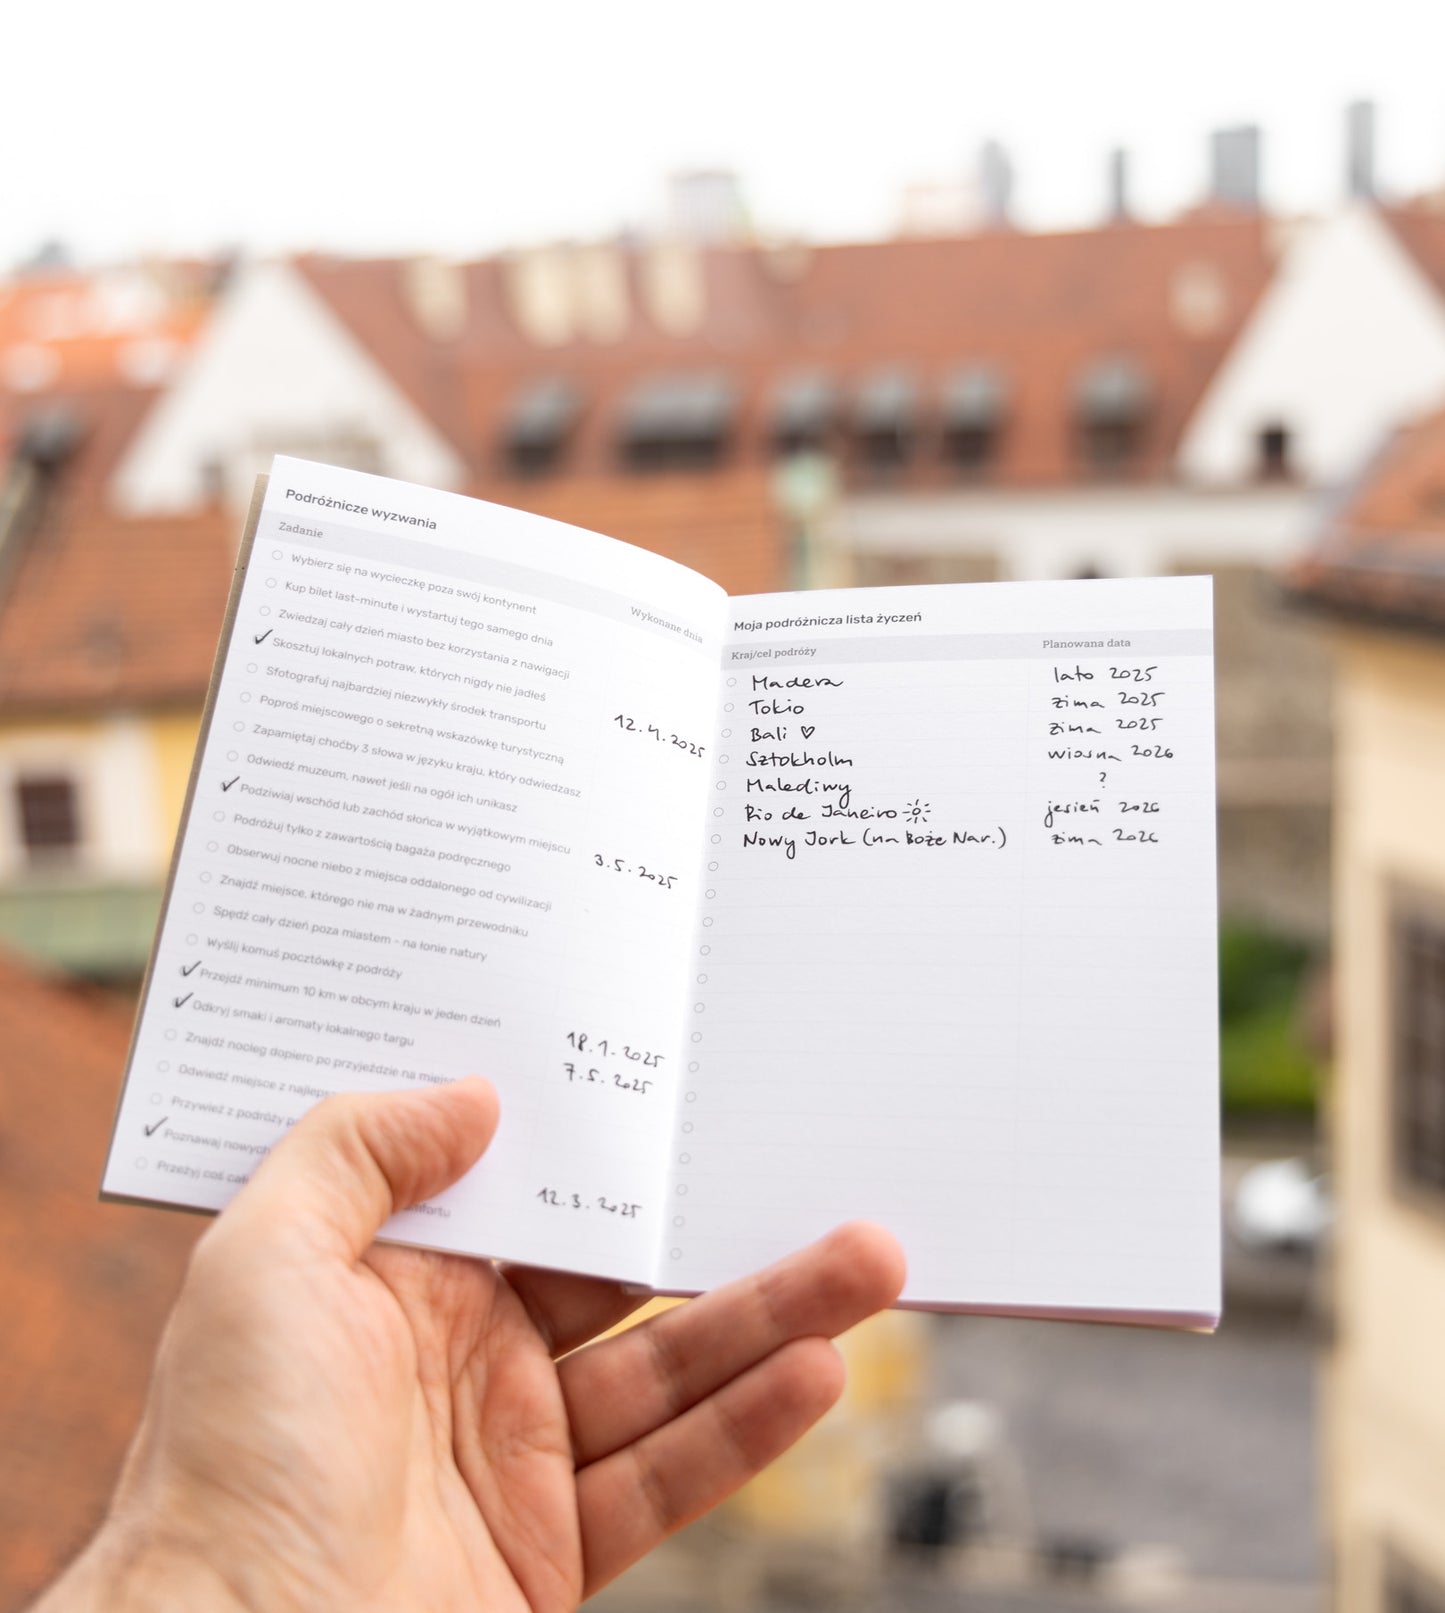 Podróżnicze wyzwania
Zadanie
Wykonane dnia
Wybierz się na wycieczkę poza swój kontynent
Kup bilet last-minute i wystartuj tego samego dnia
Zwiedzaj cały dzień miasto bez korzystania z nawigacji
✓ Skosztuj lokalnych potraw, których nigdy nie jadłeś 12.4.2025
Sfotografuj najbardziej niezwykły środek transportu
Poproś miejscowego o sekretną wskazówkę turystyczną
Zapamiętaj choćby 3 słowa w języku kraju, który odwiedzasz
Odwiedź muzeum, nawet jeśli na ogół ich unikasz
✓ Podziwiaj wschód lub zachód słońca w wyjątkowym miejscu 3.5.2025
Podróżuj tylko z zawartością bagażu podręcznego
Obserwuj nocne niebo z miejsca oddalonego od cywilizacji
Znajdź miejsce, którego nie ma w żadnym przewodniku
Spędź cały dzień poza miastem - na łonie natury
Wyślij komuś pocztówkę z podróży
✓ Przejdź minimum 10 km w obcym kraju w jeden dzień 18.1.2025
✓ Odkryj smaki i aromaty lokalnego targu 7.5.2025
Znajdź nocleg dopiero po przyjeździe na
Odwiedź miejsce z
Przywieź z podróży
✓ Poznawaj nowych 12.3.2025
Przeżyj coś
Moja podróżnicza lista życzeń
Kraj/cel podróży Planowana data
Madera lato 2025
Tokio zima 2025
Bali ♡ zima 2025
Sztokholm wiosna 2026
Malediwy ?
Rio de Janeiro jesień 2026
Nowy Jork (na Boże Nar.) zima 2026